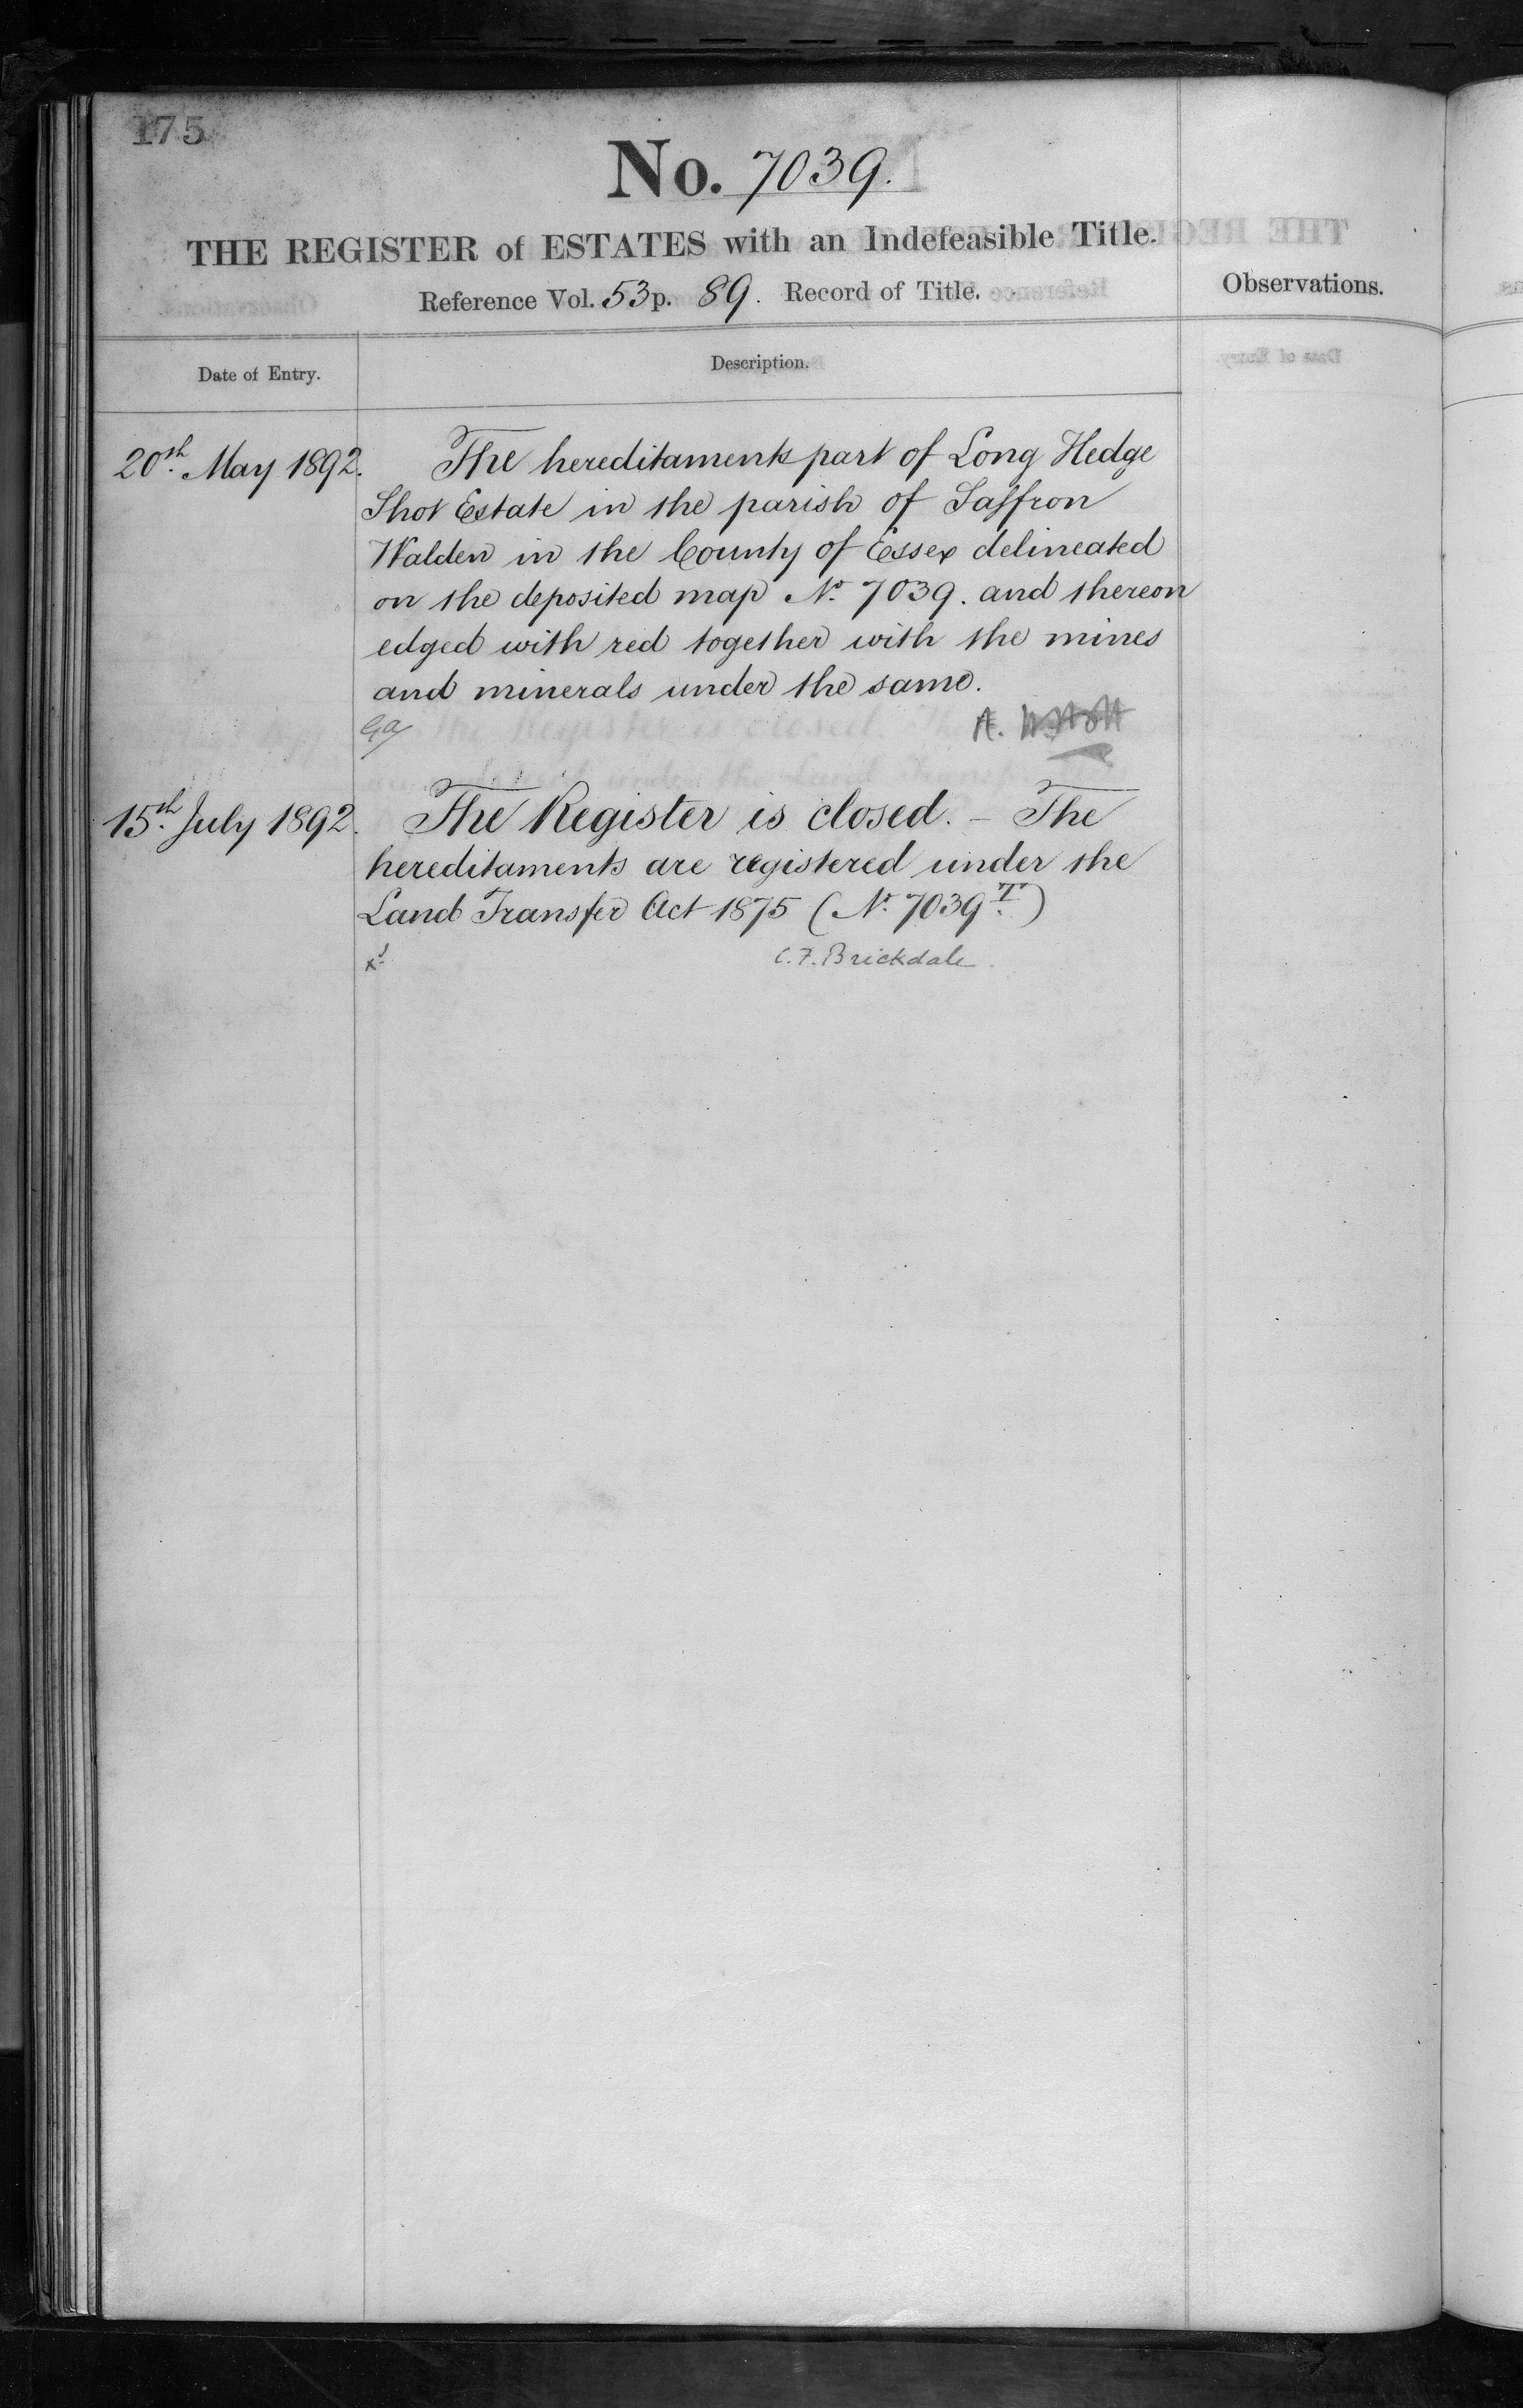 175
No. 7039.
THE REGISTER of ESTATES with an Indefeasible Title.
Reference Vol. 53 p. 89. Record of Title.
Observations.
Date of Entry.
Description.
20th. May 1892.
The hereditaments part of Long Hedge
Shot Estate in the parish of Saffron
Walden in the County of Essex delineated
on the deposited map No. 7039. and thereon
edged with red together with the mines
and minerals under the same.
A.
15th. July 1892.
The Register is closed. – The
hereditaments are registered under the
Land Transfer Act 1875 (No. 7039T.)
C. F. Brickdale.